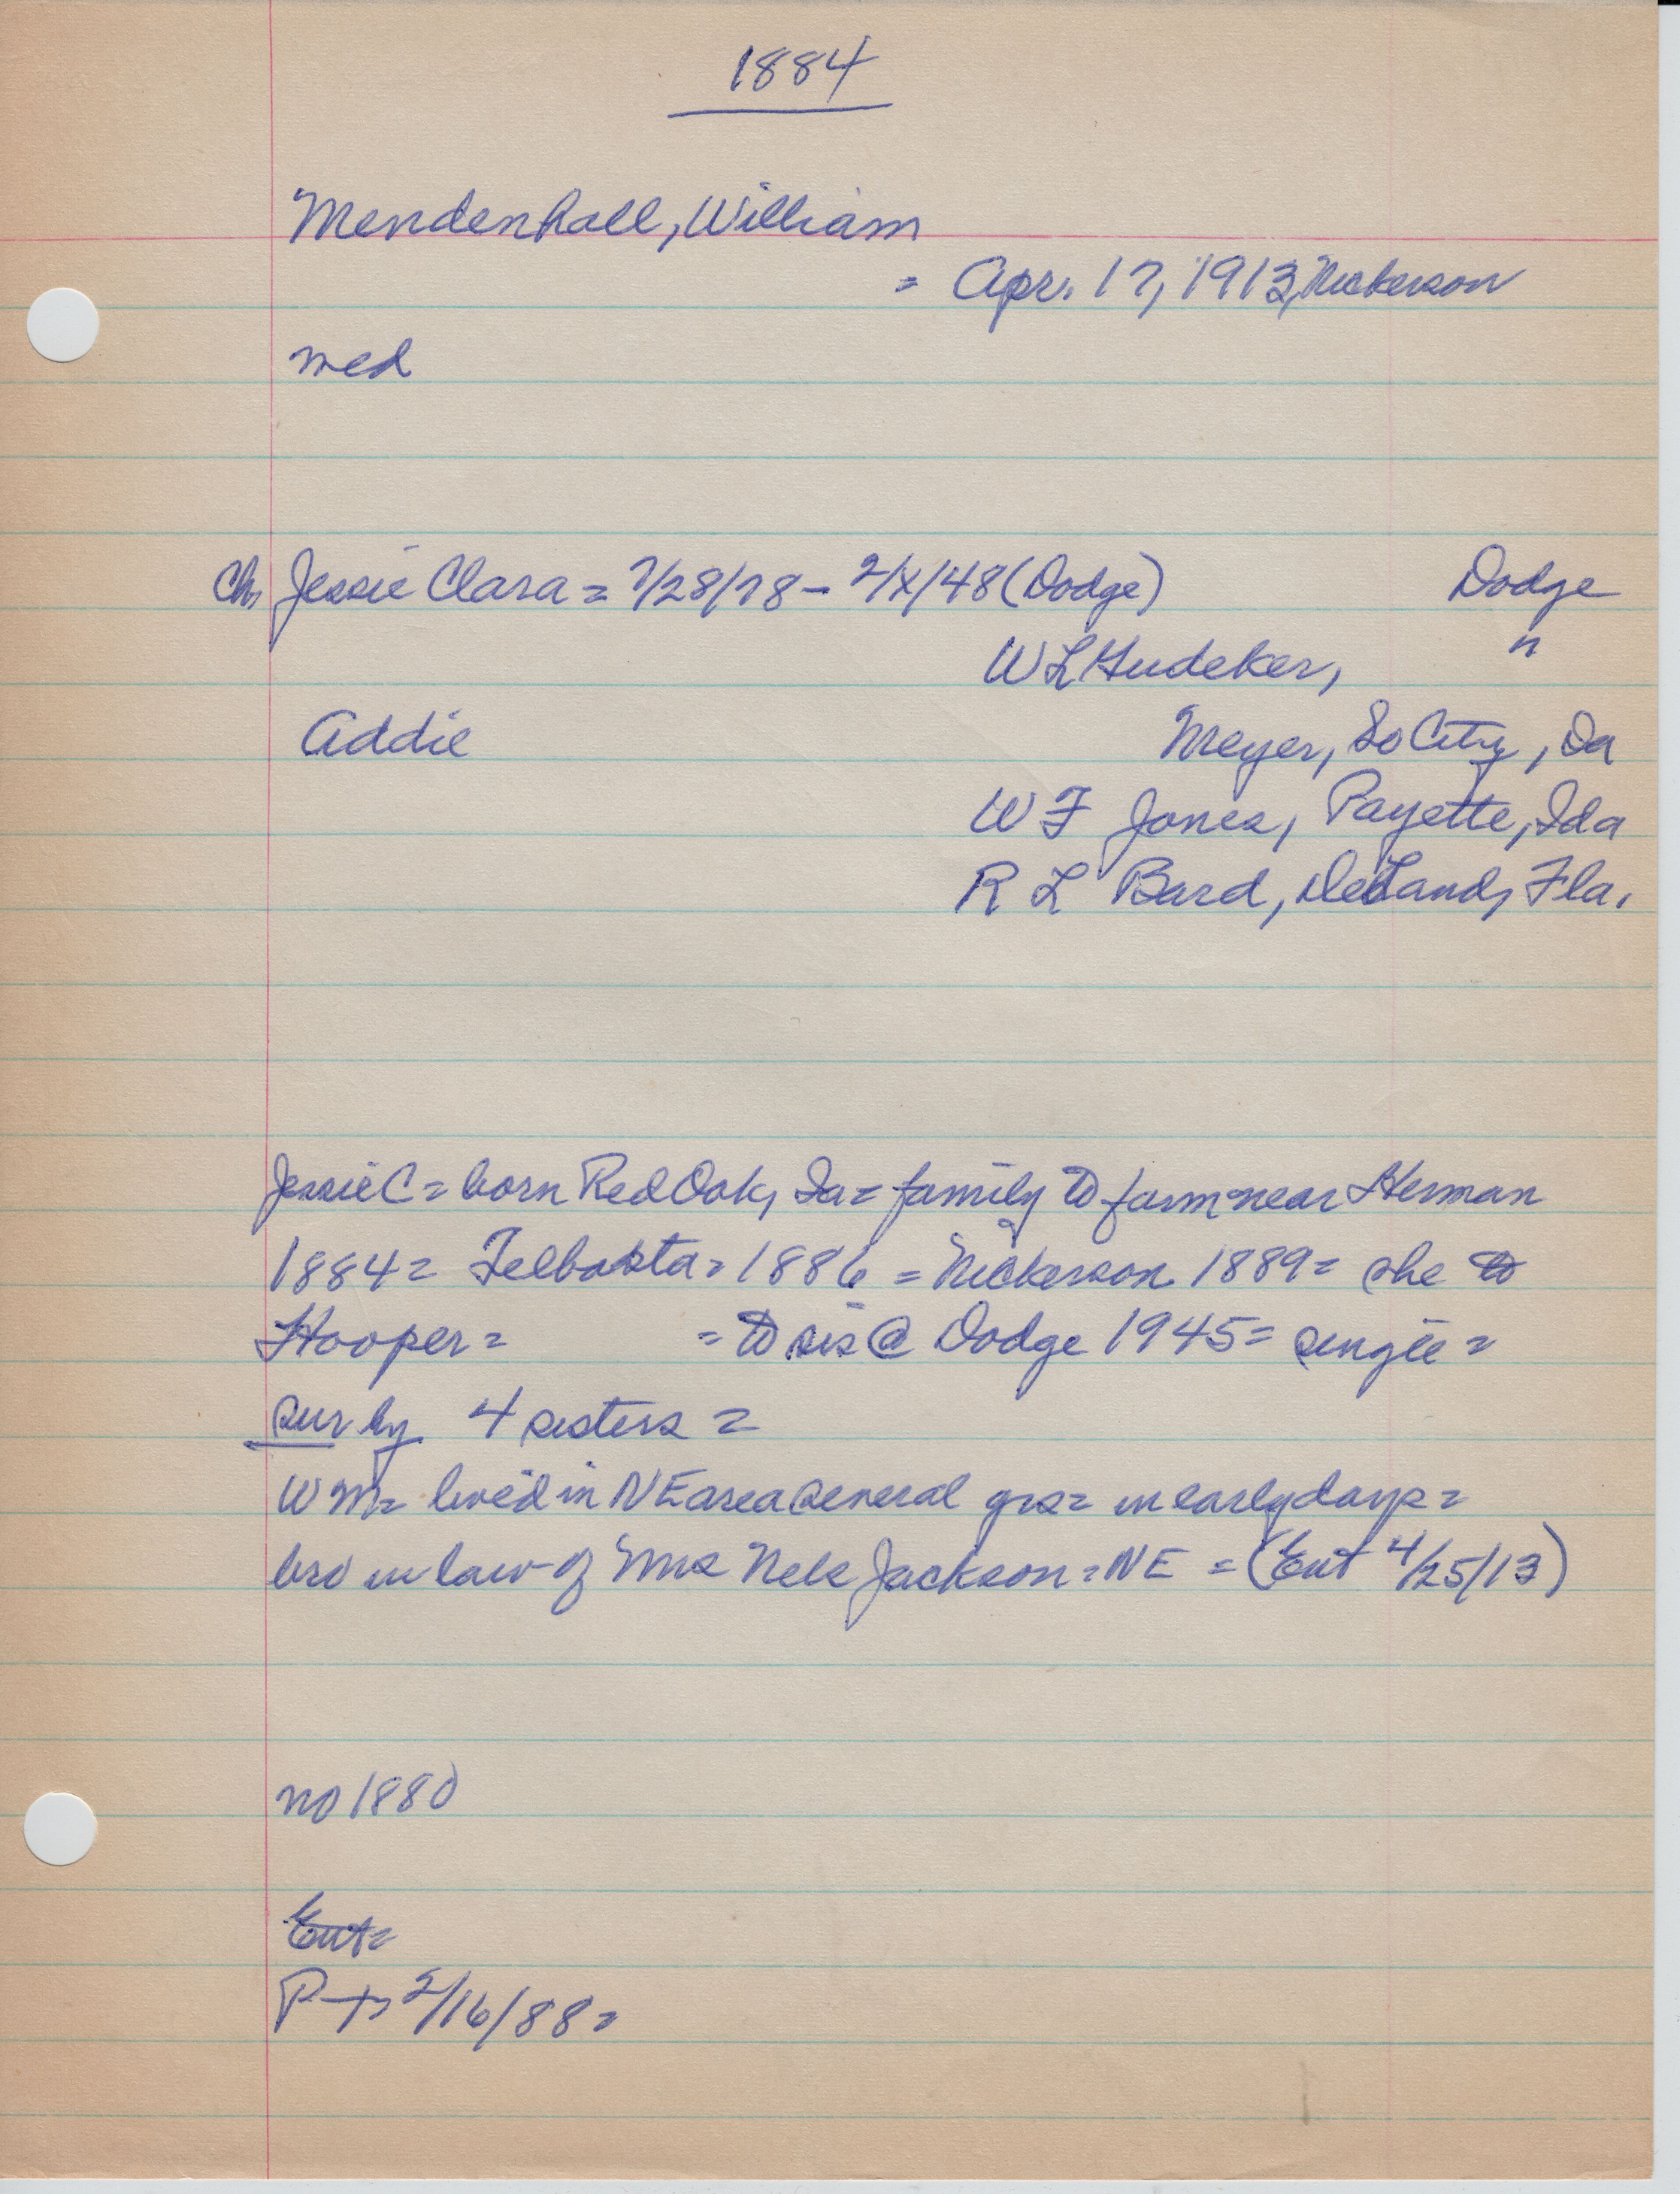 1884
Mendenhall, William
= Apr. 17, 1913, Nickerson
med
Ch, Jessie Clara = 7/28/78 - 2/X/48 (Dodge) Dodge
W L Hudeker, "
Addie Meyer, So City, Ia
W F Jones, Payette, Ida
R L Bard, DeLand, Fla.
Jessie C = born Red Oak, Ia = family to farm near Herman
1884 = Telbasta = 1886 = Nickerson 1889 = she to
Hooper = = to sis @ Dodge 1945 = single =
sur by 4 sisters =
Wm = lived in NE area several yrs = in early days =
bro in law of Mrs Nels Jackson = NE = (Ent 4/25/13)
no 1880
Ent =
P-t = 2/16/88 =